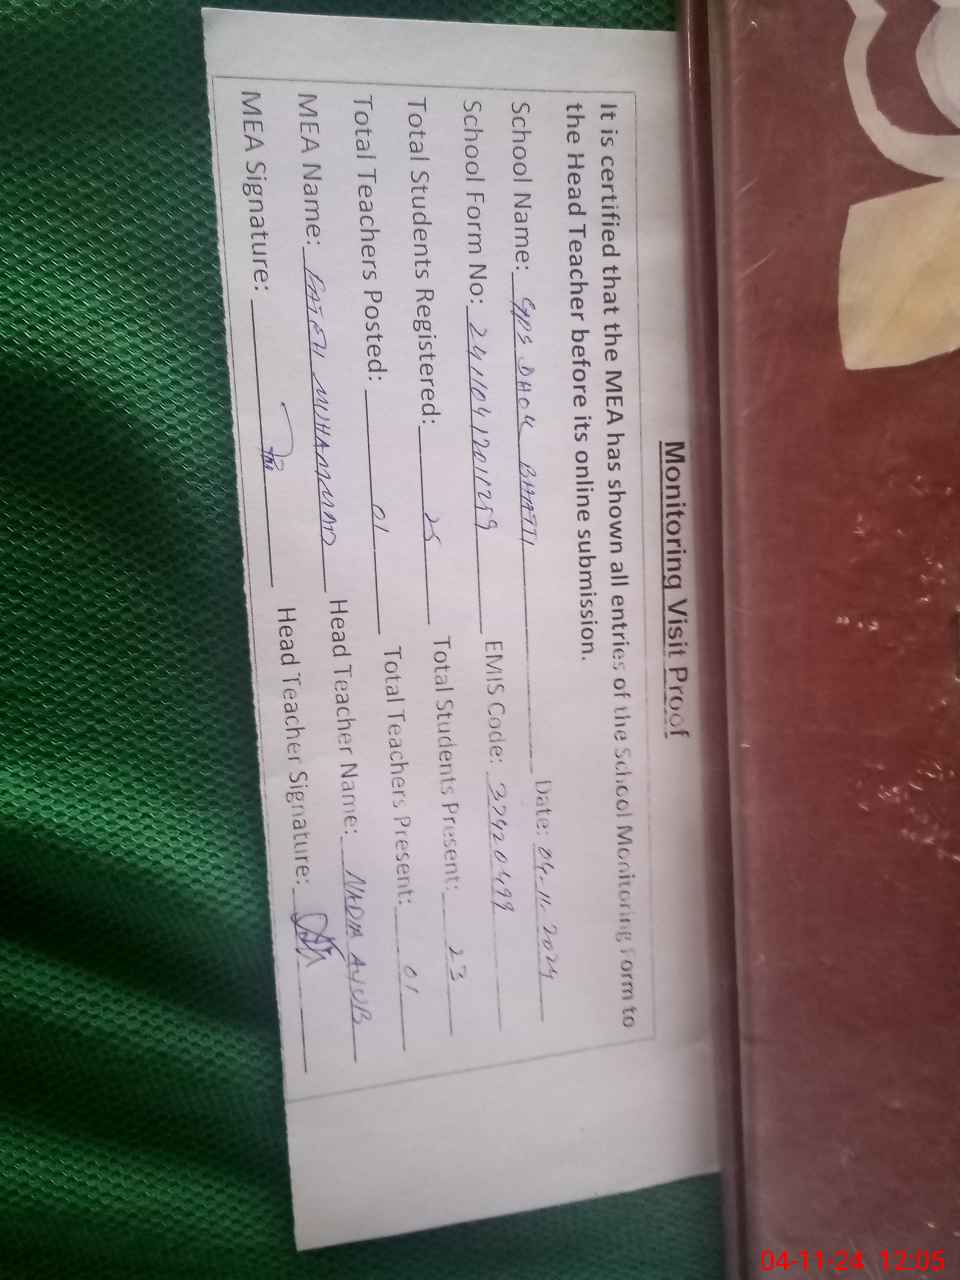 Monitoring Visit Proof
It is certified that the MEA has shown all entries of the School Monitoring Form to
the Head Teacher before its online submission.
School Name: GPS DHOK BHATTI Date: 04-11-2024
School Form No: EMIS Code: 37420499
Total Students Registered: 25 Total Students Present: 23
Total Teachers Posted: 01 Total Teachers Present: 01
MEA Name: MUHAMMAD Head Teacher Name: NADIA AYUB
MEA Signature: Head Teacher Signature:
04-11-24 12:05